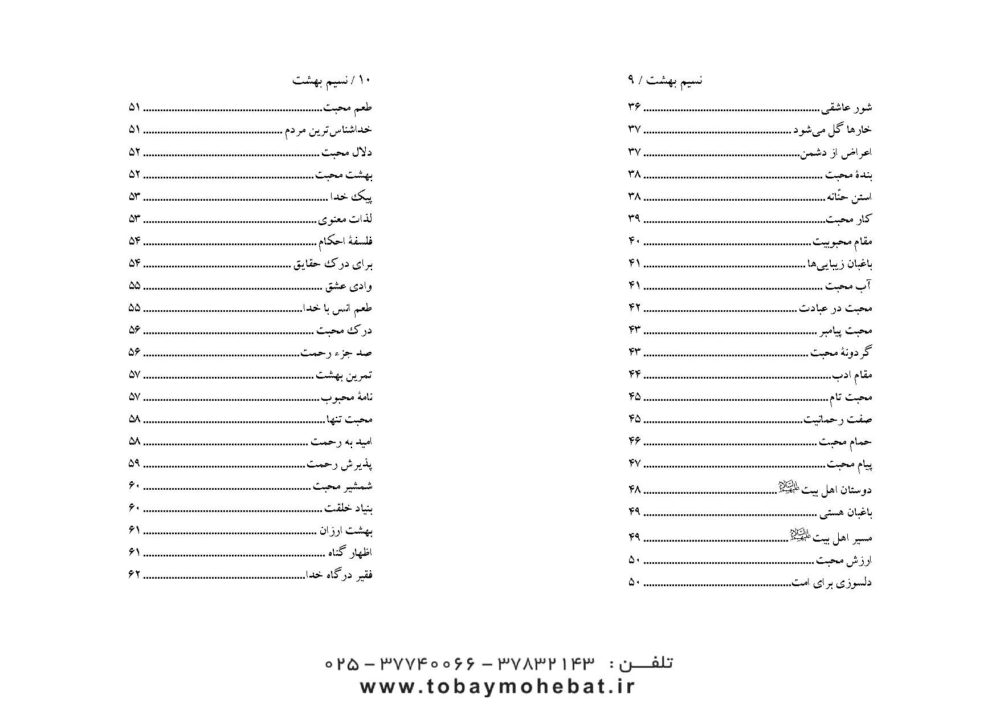 نسیم بهشت / ۹
شور عاشقی ........ ۳۶
خارها گل می‌شود ........ ۳۷
اعراض از دشمن ........ ۳۷
بندهٔ محبت ........ ۳۸
استن حنّانه ........ ۳۸
کار محبت ........ ۳۹
مقام محبوبیت ........ ۴۰
باغبان زیبایی‌ها ........ ۴۱
آب محبت ........ ۴۱
محبت در عبادت ........ ۴۲
محبت پیامبر ........ ۴۳
گردونهٔ محبت ........ ۴۳
مقام ادب ........ ۴۴
محبت تام ........ ۴۵
صفت رحمانیت ........ ۴۵
حمام محبت ........ ۴۶
پیام محبت ........ ۴۷
دوستان اهل بیت ........ ۴۸
باغبان هستی ........ ۴۹
مسیر اهل بیت ........ ۴۹
ارزش محبت ........ ۵۰
دلسوزی برای امت ........ ۵۰
۱۰ / نسیم بهشت
طعم محبت ........ ۵۱
خداشناس‌ترین مردم ........ ۵۱
دلال محبت ........ ۵۲
بهشت محبت ........ ۵۲
پیک خدا ........ ۵۳
لذات معنوی ........ ۵۳
فلسفهٔ احکام ........ ۵۴
برای درک حقایق ........ ۵۴
وادی عشق ........ ۵۵
طعم انس با خدا ........ ۵۵
درک محبت ........ ۵۶
صد جزء رحمت ........ ۵۶
تمرین بهشت ........ ۵۷
نامهٔ محبوب ........ ۵۷
محبت تنها ........ ۵۸
امید به رحمت ........ ۵۸
پذیرش رحمت ........ ۵۹
شمشیر محبت ........ ۶۰
بنیاد خلقت ........ ۶۰
بهشت ارزان ........ ۶۱
اظهار گناه ........ ۶۱
فقیر درگاه خدا ........ ۶۲
تلفــن : ۳۷۸۳۲۱۴۳ – ۳۷۷۴۰۰۶۶ – ۰۲۵
www.tobaymohebat.ir